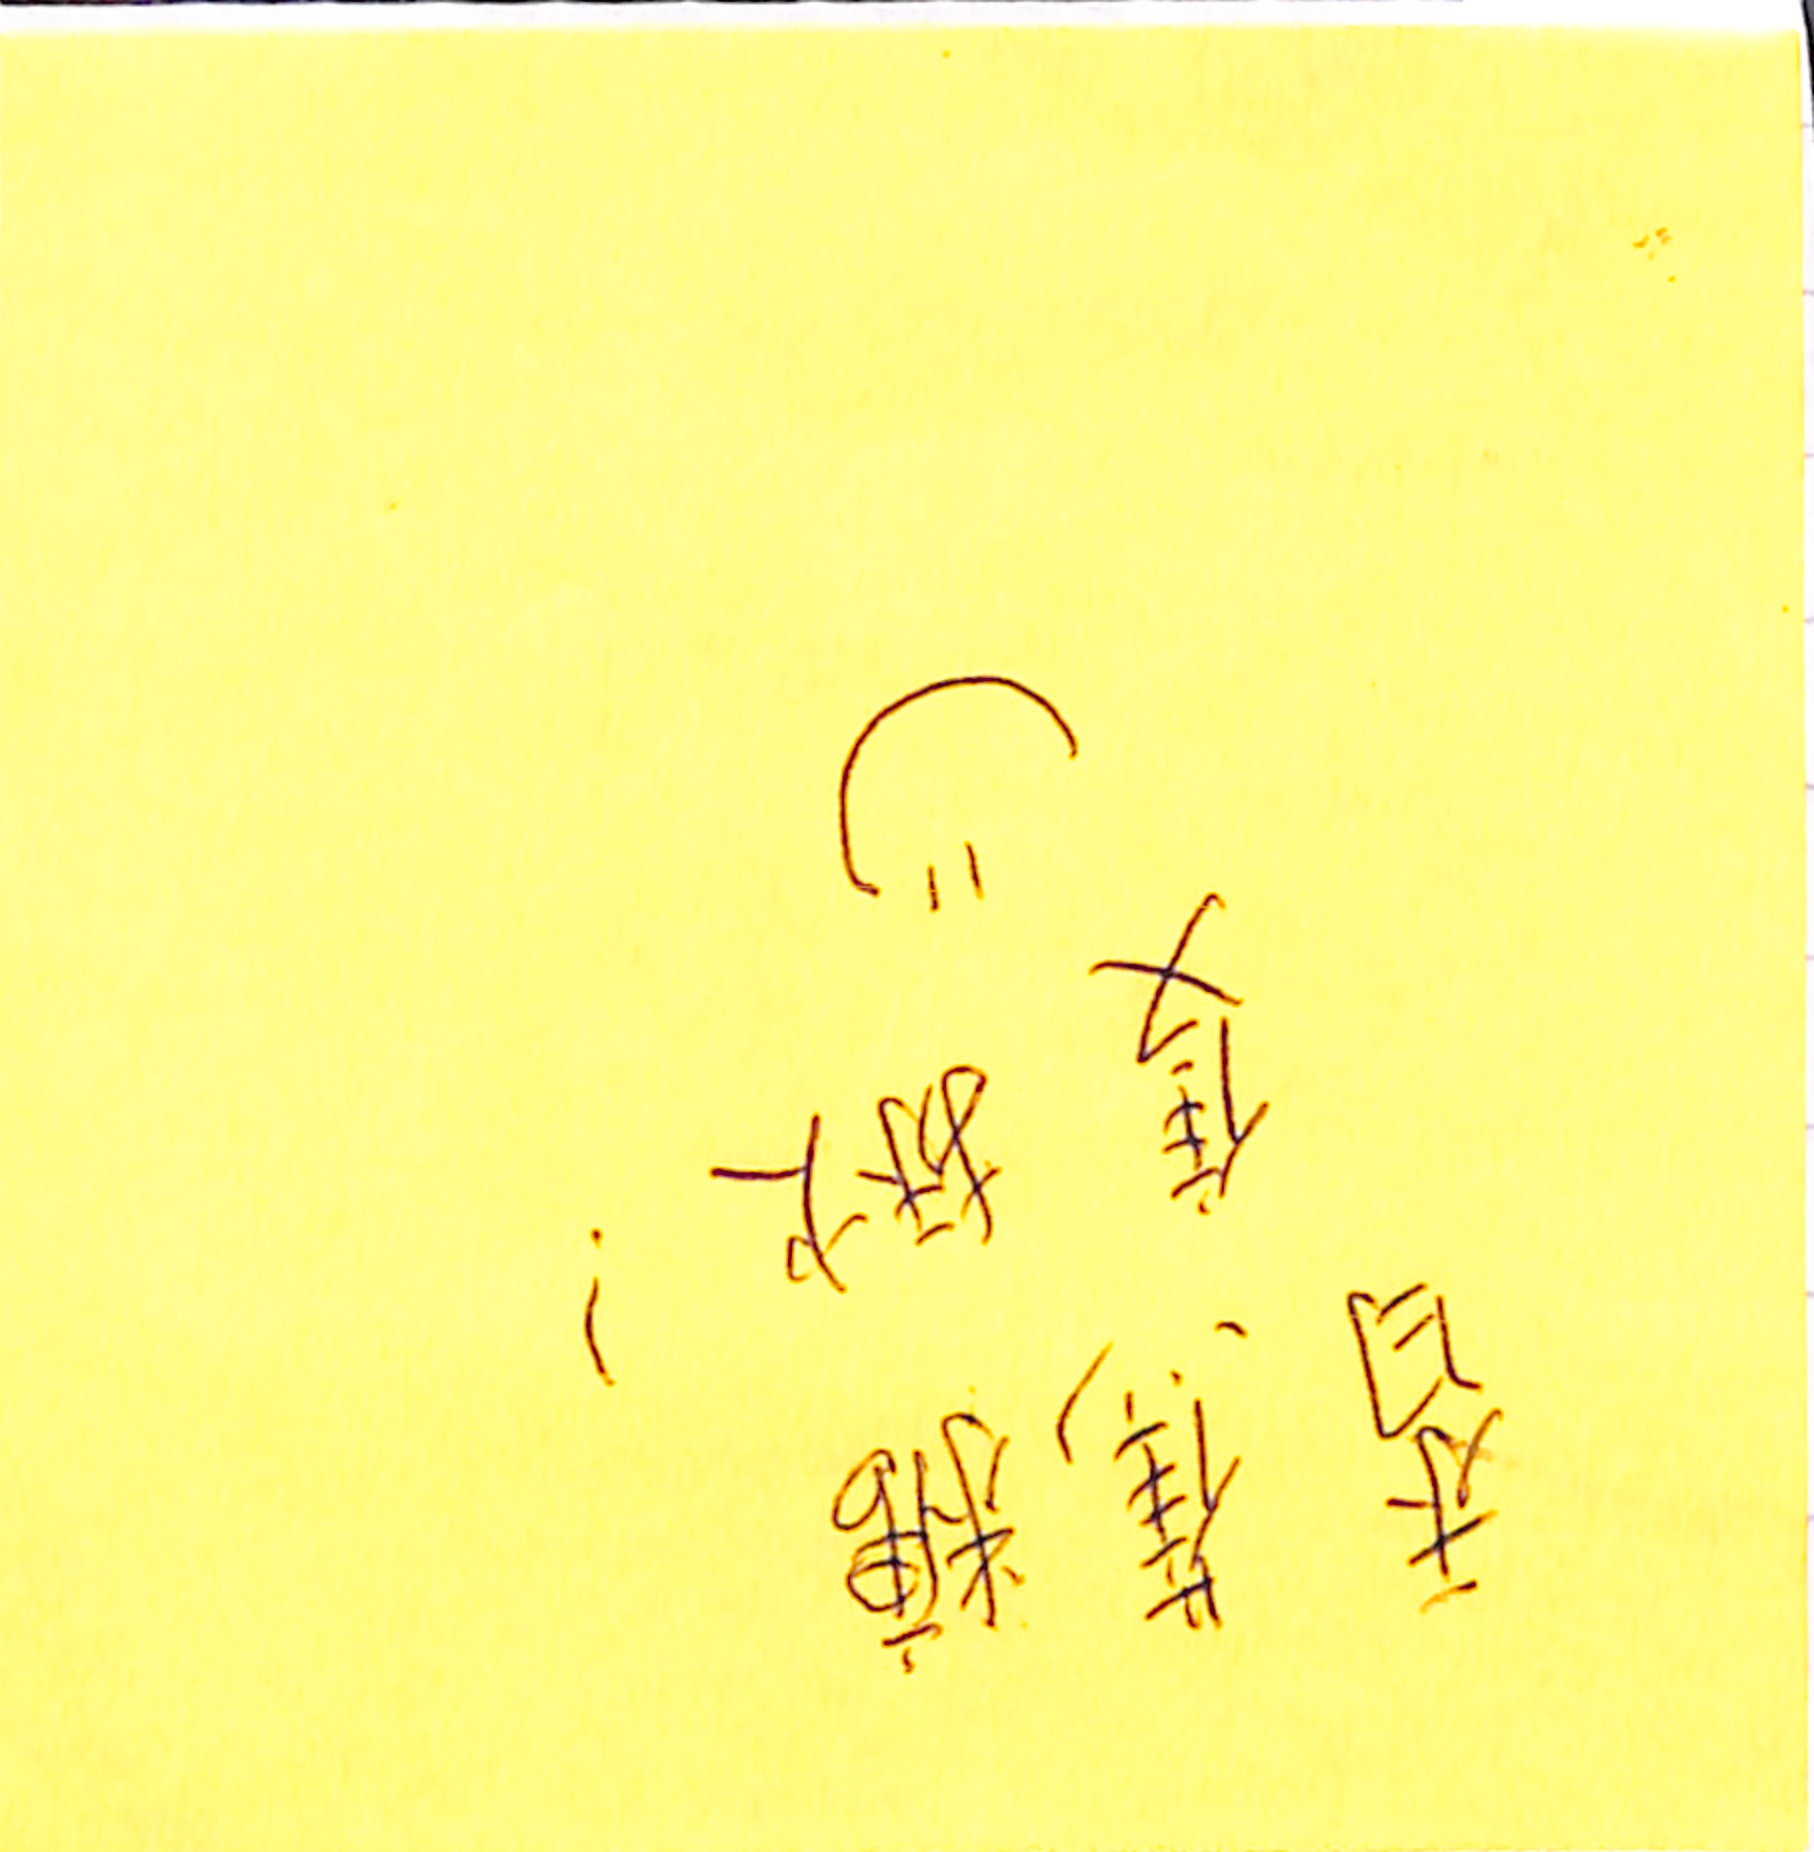 香蕉糖
隻揪!